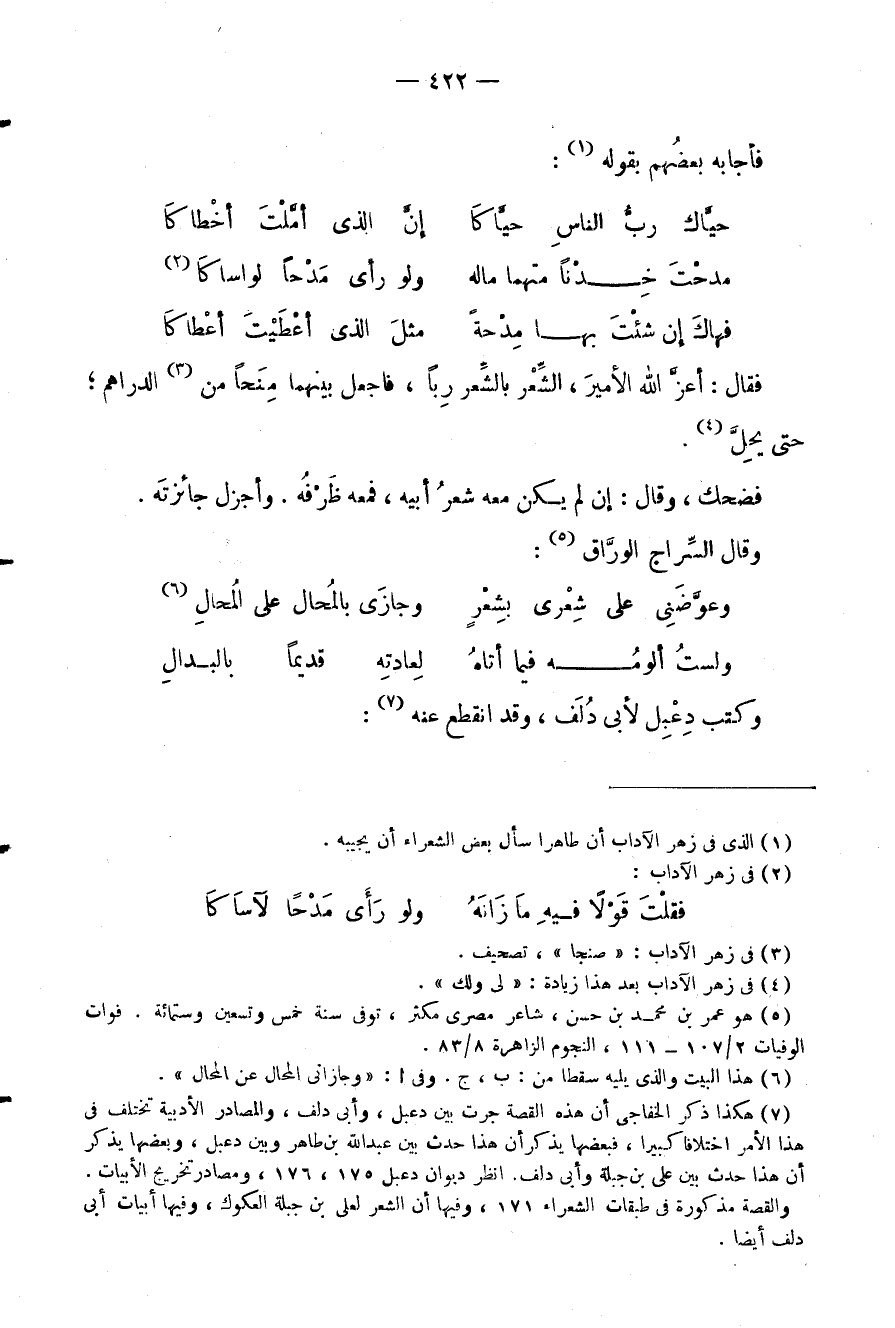 — ٤٢٢ —
فأجابه بعضُهم بقوله (١) :
حيَّاك ربُّ الناسِ حيَّاكَا إنَّ الذى أمَّلْتَ أخْطاكَا
مدحْتَ خِـــدْناً منهما ماله ولو رأى مَدْحاً لواساكَا (٢)
فهاكَ إن شئْتَ بهـــا مِدْحةً مثلَ الذى أعْطَيْتَ أعْطاكَا
فقال : أعزَّ الله الأميرَ ، الشِّعْر بالشِّعر رِباً ، فاجعل بينهما مِنَحاً من (٣) الدراهم ؛
حتى يحِلَّ (٤) .
فضحك ، وقال : إن لم يكن معه شعرُ أبيه ، فمعه ظَرْفُه . وأجزل جائزتَه .
وقال السِّراج الورَّاق (٥) :
وعوَّضَنِى على شِعْرى بشِعْرٍ وجازَى بالمُحال على المُحالِ (٦)
ولستُ ألومُـــــه فيما أتاهُ لِعادتِه قديماً بالبـدالِ
وكتب دِعْبِل لأبى دُلَف ، وقد انقطع عنه (٧) :
(١) الذى فى زهر الآداب أن طاهرا سأل بعض الشعراء أن يجيبه .
(٢) فى زهر الآداب :
فقلْتَ قَوْلًا فـيهِ مَا زَانَهُ ولو رَأَى مَدْحًا لَآسَاكَا
(٣) فى زهر الآداب : « صنجا » ، تصحيف .
(٤) فى زهر الآداب بعد هذا زيادة : « لى ولك » .
(٥) هو عمر بن محمـد بن حسن ، شاعر مصرى مكثر ، توفى سنة خمس وتسعين وستمائة . فوات
الوفيات ١٠٧/٢ – ١١١ ، النجوم الزاهرة ٨٣/٨ .
(٦) هذا البيت والذى يليه سقطا من : ب ، ج . وفى ا : «وجازانى المحال عن المحال » .
(٧) هكذا ذكر الخفاجى أن هذه القصة جرت بين دعبل ، وأبى دلف ، والمصادر الأدبية تختلف فى
هذا الأمر اختلافا كبيرا ، فبعضها يذكر أن هذا حدث بين عبدالله بن طاهر وبين دعبل ، وبعضها يذكر
أن هذا حدث بين على بن جبلة وأبى دلف. انظر ديوان دعبل ١٧٥ ، ١٧٦ ، ومصادر تخريج الأبيات .
والقصة مذكورة فى طبقات الشعراء ١٧١ ، وفيها أن الشعر لعلى بن جبلة العكوك ، وفيها أبيات أبى
دلف أيضا .